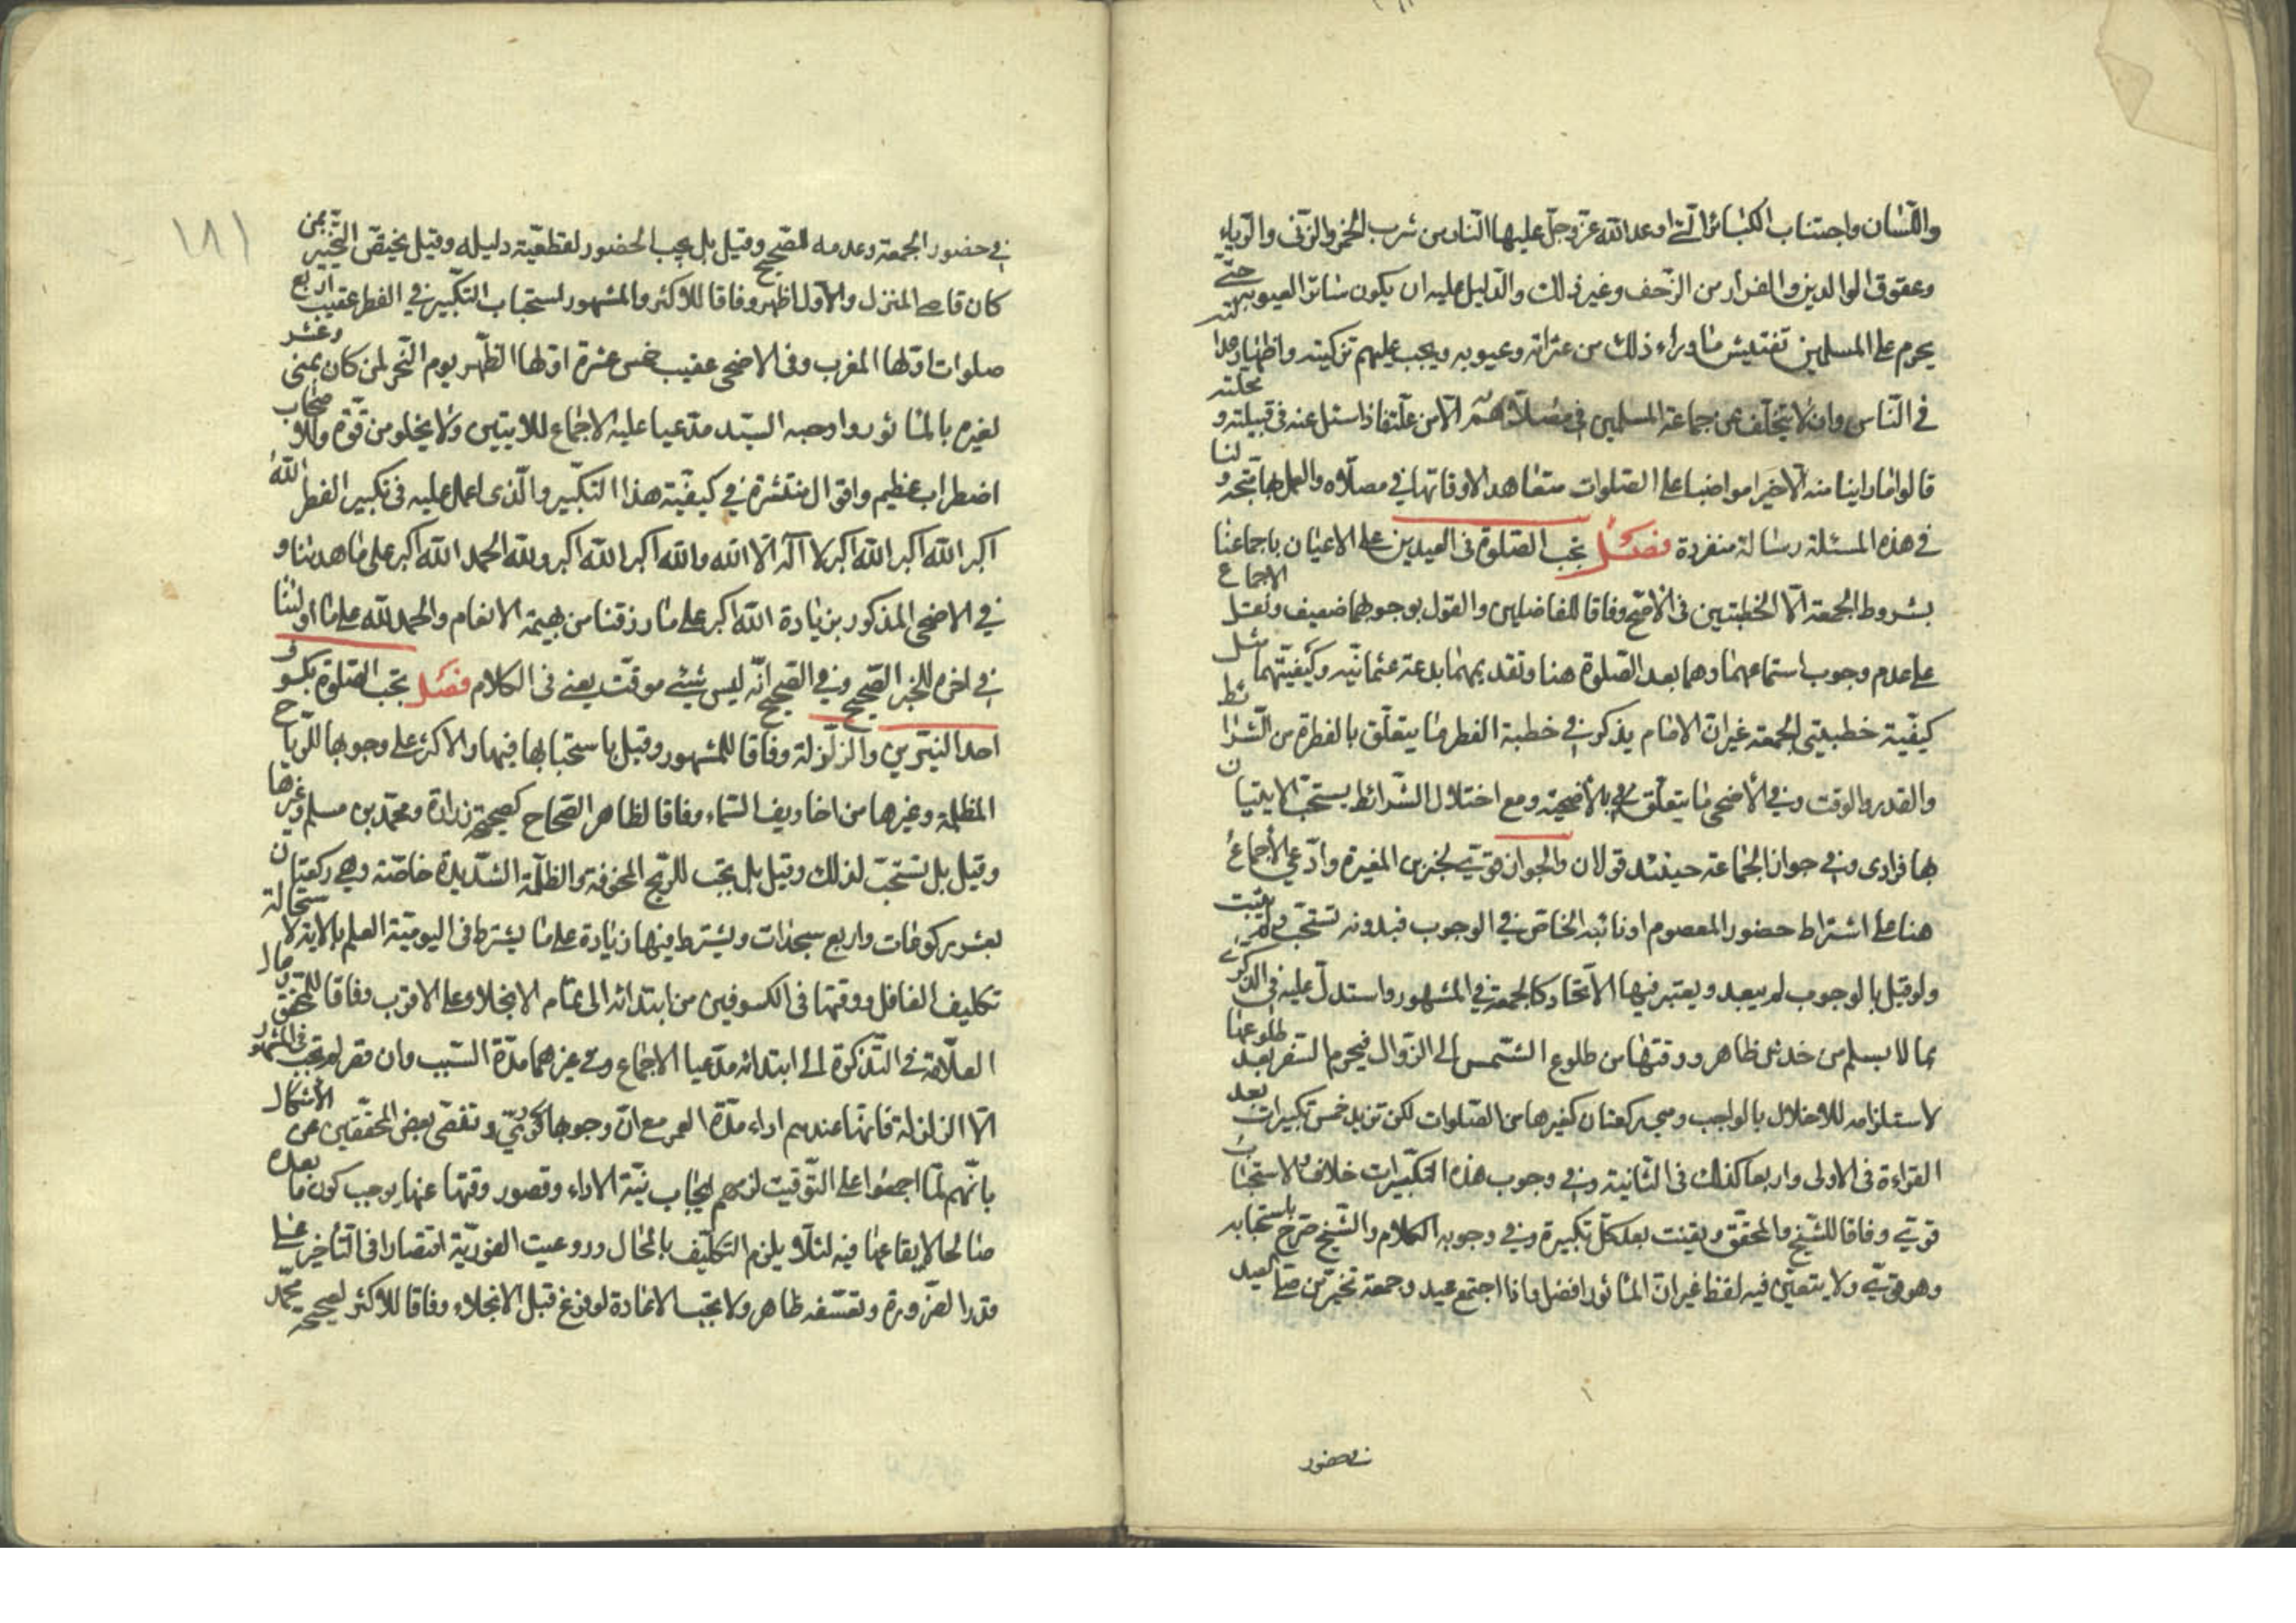 واللسان واجتناب الكبائر التي اوعد الله عز وجل عليها النار من شرب الخمر والزنى والرباء
وعقوق الوالدين والفرار من الزحف وغير ذلك والدليل عليه ان يكون ساتر العيوبه حتى
يحرم على المسلمين تفتيش ما وراء ذلك من عثراته وعيوبه ويجب عليهم تزكيته واظهار عدالته
في الناس وان لا يتخلف عن جماعة المسلمين في مصلاهم الا من علة فاذا سئل عنه في قبيلته و محلته
قالوا ما راينا منه الا خيرا مواضبا على الصلوات متعاهدا لاوقاتها في مصلاه والعمل بها متجه و لنا
في هذه المسئلة رسالة منفردة فصل تجب الصلوة في العيدين على الاعيان باجماعنا
بشروط الجمعة الا الخطبتين في الاصح وفاقا للفاضلين والقول بوجوبهما ضعيف ونقل الاجماع
على عدم وجوب استماعهما وهما بعد الصلوة هنا وتقديمهما بدعة عثمانية وكيفيتهما مثل
كيفية خطبتي الجمعة غير ان الامام يذكر في خطبة الفطر ما يتعلق بالفطرة من الشرائط
والقدر والوقت وفي الاضحى ما يتعلق بالاضحية ومع اختلال الشرائط يستحب الاتيان
بها فرادى وفي جواز الجماعة حينئذ قولان والجواز قوي لخبر بن المغيرة وادعي الاجماع
هنا على اشتراط حضور المعصوم او نائبه الخاص في الوجوب فبدونه تستحب ولم يثبت
ولو قيل بالوجوب لم يبعد ويعتبر فيها الاتحاد كالجمعة في المشهور واستدل عليه في الذكرى
بما لا يسلم من خدش ظاهر ووقتها من طلوع الشمس الى الزوال فيحرم السفر بعد طلوعها
لاستلزامه للاخلال بالواجب وهي ركعتان كغيرها من الصلوات لكن تزيد خمس تكبيرات بعد
القراءة في الاولى واربعا كذلك في الثانية وفي وجوب هذه التكبيرات خلاف والاستحباب
قوي وفاقا للشيخ والمحقق ويقنت بعد كل تكبيرة وفي وجوبه الكلام والشيخ صرح باستحبابه
وهو قوي ولا يتعين فيه لفظ غير ان الماثور افضل واذا اجتمع عيد وجمعة تخير من صلى العيد
في حضور
١٨١
في حضور الجمعة وعدمه للصحيح وقيل بل يجب الحضور لقطعية دليله وقيل يختص التخيير بمن
كان قاصي المنزل والاول اظهر وفاقا للاكثر والمشهور استحباب التكبير في الفطر عقيب اربع
صلوات اولها المغرب وفي الاضحى عقيب خمس عشرة اولها الظهر يوم النحر لمن كان بمنى وعشر
لغيره بالماثور واوجبه السيد مدعيا عليه الاجماع للايتين ولا يخلو من قوة وللاصحاب
اضطراب عظيم واقوال منتشرة في كيفية هذا التكبير والذي اعمل عليه في تكبير الفطر الله
اكبر الله اكبر الله اكبر لا اله الا الله والله اكبر الله اكبر ولله الحمد الله اكبر على ما هدينا و
في الاضحى المذكور بزيادة الله اكبر على ما رزقنا من بهيمة الانعام والحمد لله على ما اولينا
في اخره للخبر الصحيح وفي الصحيح انه ليس شيء موقت يعني في الكلام فصل تجب الصلوة بكسوف
احد النيرين والزلزلة وفاقا للمشهور وقيل باستحبابها فيها والاكثر على وجوبها للرياح
المظلمة وغيرها من اخاويف السماء وفاقا لظاهر الصحاح كصحيحة زرارة ومحمد بن مسلم وغيرها
وقيل بل تستحب لذلك وقيل بل يجب للريح المخوفة والظلمة الشديدة خاصة وهي ركعتان
بعشر ركوعات واربع سجدات ويشترط فيها زيادة على ما يشترط في اليومية العلم بالاية لاستحالة
تكليف الغافل ووقتها في الكسوفين من ابتدائه الى تمام الانجلاء على الاقرب وفاقا للمحقق وقال
العلامة في التذكرة الى ابتدائه مدعيا الاجماع وفي غيرهما مدة السبب وان قصر لم تجب في المشهور
الا الزلزلة فانها عندهم اداء مدة العمر مع ان وجوبها فوري وتفصى بعض المحققين عن الاشكال
بانهم لما اجمعوا على التوقيت لزمهم ايجاب نية الاداء وقصور وقتها عنها يوجب كون ما بعده
صالحا لايقاعها فيه لئلا يلزم التكليف بالمحال وروعيت الفورية اقتصارا في التاخير على
قدر الضرورة وتعسفه ظاهر ولا يجب الاعادة لو فرغ قبل الانجلاء وفاقا للاكثر لصحيحة محمد